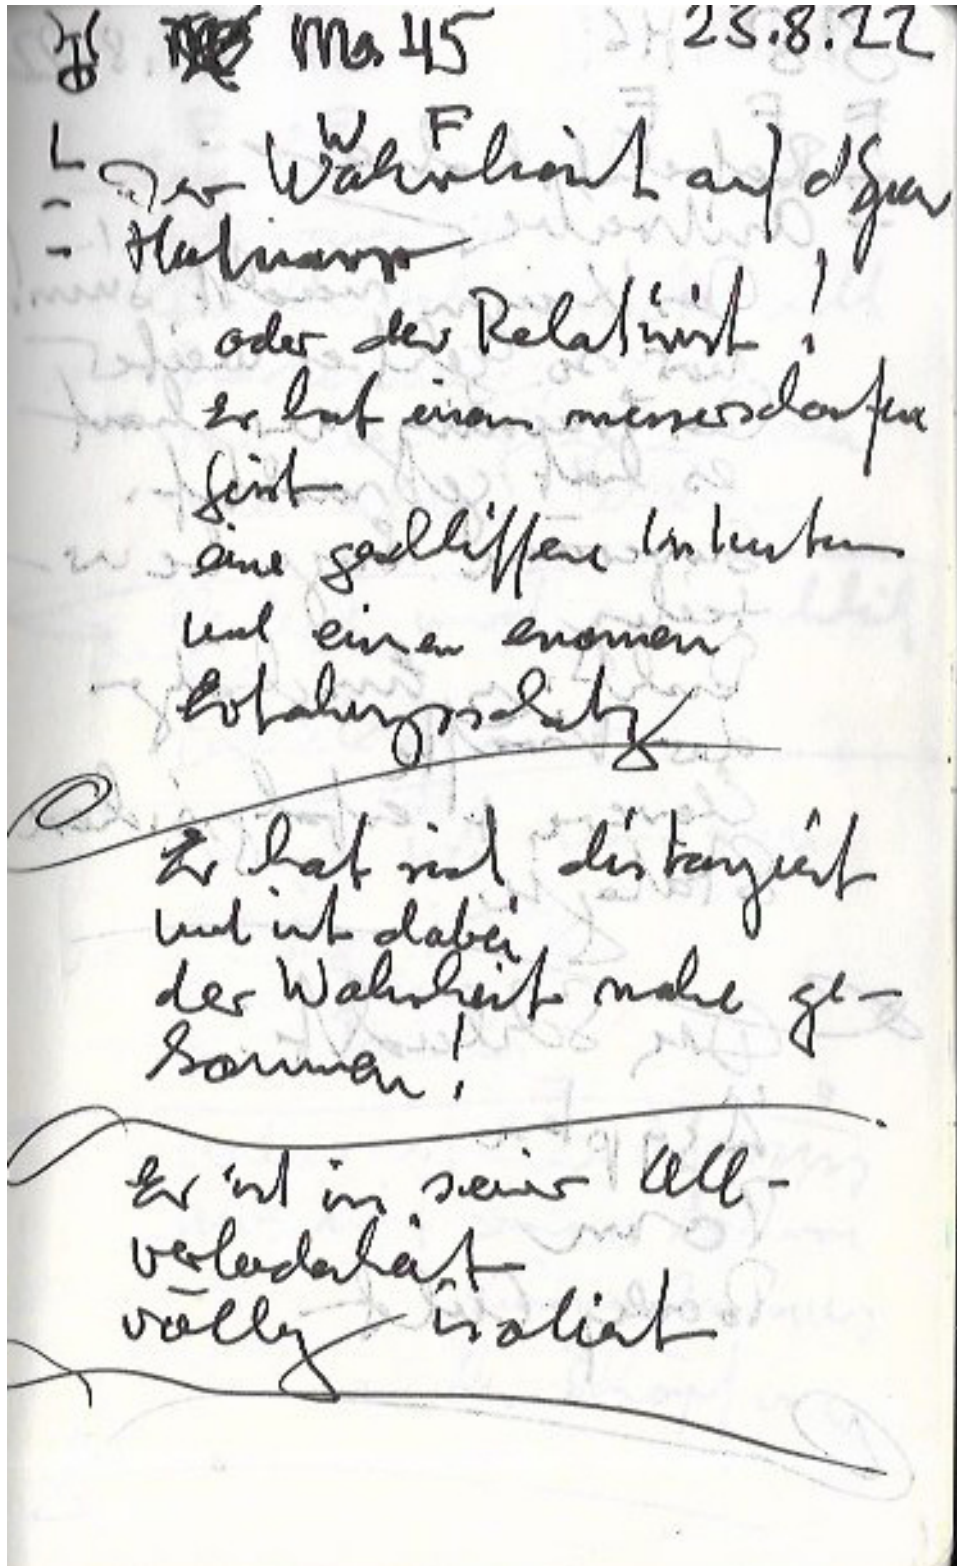 Mo. 45 23.8.22
W F
Der Wahrheit auf d
oder der Relativist!
Er hat einen messerscharfen
Geist
eine geschliffene
und einen enormen
Erfahrungsschatz
Er hat sich distanziert
und ist dabei
der Wahrheit nahe ge-
kommen!
Er ist in seiner All-
völlig isoliert